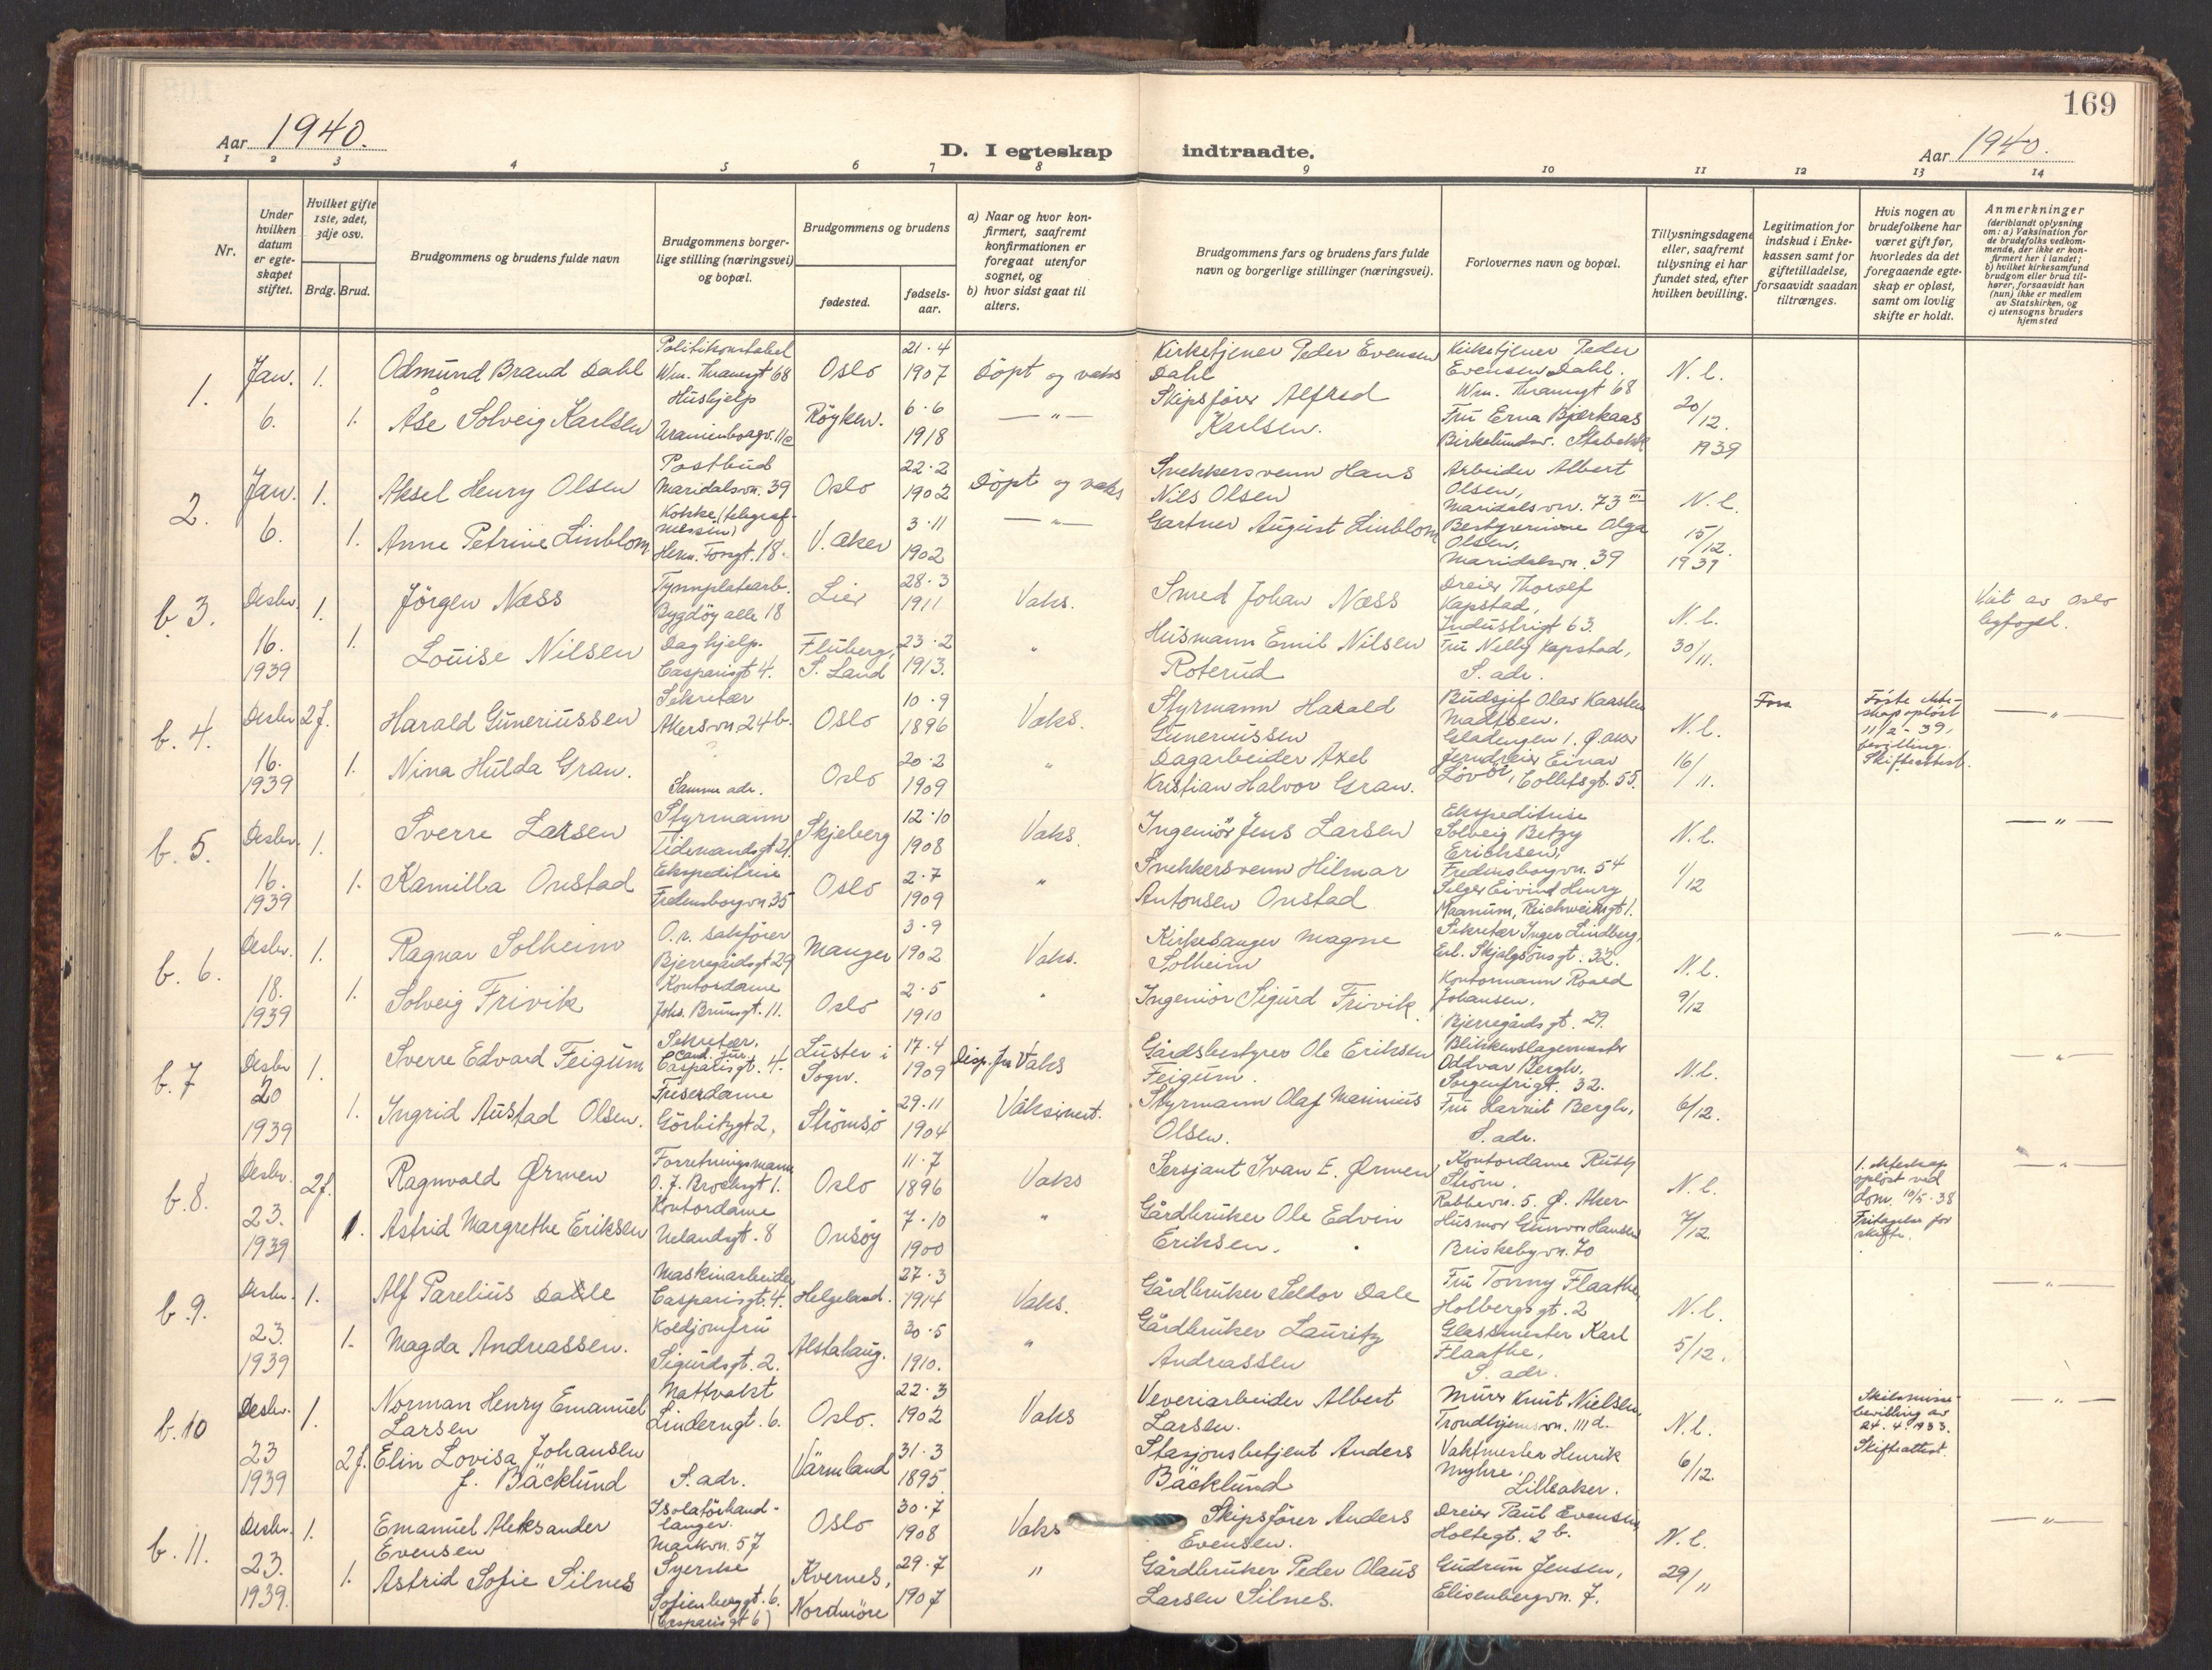 169
Aar 1940.
D. I egteskap indtraadte.
Aar 1940.
1 2 3 4 5 6 7 8 9 10 11 12 13 14
Nr.
Under hvilken datum er egteskapet stiftet.
Hvilket gifte 1ste, 2det, 3dje osv.
Brdg. Brud.
Brudgommens og brudens fulde navn
Brudgommens borgerlige stilling (næringsvei) og bopæl.
Brudgommens og brudens
fødested.
fødselsaar.
a) Naar og hvor konfirmert, saafremt konfirmationen er foregaat utenfor sognet, og
b) hvor sidst gaat til alters.
Brudgommens fars og brudens fars fulde navn og borgerlige stillinger (næringsvei).
Forlovernes navn og bopæl.
Tillysningsdagene eller, saafremt tillysning ei har fundet sted, efter hvilken bevilling.
Legitimation for indskud i Enkekassen samt for giftetilladelse, forsaavidt saadan tiltrænges.
Hvis nogen av brudefolkene har været gift før, hvorledes da det foregaaende egteskap er opløst, samt om lovlig skifte er holdt.
Anmerkninger
(deriblandt oplysning om: a) Vaksination for de brudefolks vedkommende, der ikke er konfirmert her i landet; b) hvilket kirkesamfund brudgom eller brud tilhører, forsaavidt han (hun) ikke er medlem av Statskirken, og c) utensogns bruders hjemsted
1. Jan. 6. 1. Odmund Brand Dahl Politikonstabel Wm. Thranesgt 68 Oslo 21.4 1907 Döpt og vaks Kirketjener Peder Evensen Dahl Kirketjener Peder Evensen Dahl. Wm. Thranesgt 68 N.l. 20/12. 1939
1. Åse Solveig Karlsen Hushjelp Uranienborgv. 11 Røyken. 6.6 1918 — " — Skipsfører Alfred Karlsen. Fru Erna Bjerkaas Birkelundsv. Stabekk
2. Jan. 6. 1. Aksel Henry Olsen Postbud Maridalsvn. 39 Oslo 22.2 1902 Döpt og vaks Snekkersvenn Hans Nils Olsen Arbeider Albert Olsen, Maridalsvn. 73 III N.l. 15/12. 1939
1. Anne Petrine Linblom Kokke (telegraf- Herm. Fossgt. 18. V. Aker 3.11 1902 — " — Gartner August Linblom Bestyrerinne Olga Olsen, Maridalsvn. 39
b. 3. Desbr. 16. 1939 1. Jörgen Næss Tynnplatearb. Bygdöy alle 18 Lier 28.3 1911 Vaks. Smed Johan Næss Dreier Thorolf Kapstad, Industrigt 63. N.l. 30/11. Viet av Oslo byfoged.
1. Louise Nilsen Daghjelp. Casparisgt 4. Fluberg, S. Land 23.2 1913. " Husmann Emil Nilsen Roterud Fru Nelly Kapstad, S. adr.
b. 4. Desbr 16. 1939 2 f. Harald Guneriussen Sekretær Akersvn 24 b. Oslo 10.9 1896 Vaks. Styrmann Harald Guneriussen Budsjef Olav Karsten Madtsen. Gladengen 1. Ø. Aker N.l. 16/11. Første ekteskap opløst 11/2-39, bevilling. Skifteattest. — " —
1. Nina Hulda Gran. Samme adr. Oslo 20.2 1909 " Dagarbeider Axel Kristian Halvor Gran. Jerndreier Einar Lövör, Colletsgt. 55.
b. 5. Desbr. 16. 1939 1. Sverre Larsen Styrmann Tidemandsgt 21. Skjeberg 12.10 1908 Vaks. Ingeniör Jens Larsen Ekspeditrise Solveig Betzy Erichsen, Fredensborgvn. 54 N.l. 1/12 — " —
1. Kamilla Onstad Ekspeditrise Fredensborgvn 35 Oslo 2.7 1909 " Snekkersvenn Hilmar Antonsen Onstad Selger Eivind Henry Maanum, Reichweinsgt 1.
b. 6. Desbr. 18. 1939 1. Ragnar Solheim O.r. sakfører Bjerregårdsgt 29 Manger 3.9 1902 Vaks. Kirkesanger Magne Solheim Sekretær Inger Lindberg, Erl. Skjalgsönsgt. 32. N.l. 9/12 — " —
1. Solveig Frivik Kontordame Johs. Brunsgt. 11. Oslo 2.5 1910 " Ingeniör Sigurd Frivik Kontormann Roald Johansen. Bjerregårdsgt. 29.
b. 7 Desbr 20 1939 1. Sverre Edvard Feigum Sekretær, Cand. jur. Casparisgt. 4. Luster i Sogn. 17.4 1909 Disp. fra Vaks Gårdsbestyrer Ole Eriksen Feigum. Blikkenslagermester Oddvar Bergh, Sorgenfrigt. 32. N.l. 6/12. — " —
1. Ingrid Austad Olsen. Friserdame Görbitzgt 2, Strömsö 29.11 1904 Vaksinert. Styrmann Olaf Marinius Olsen. Fru Harriet Bergh, S. adr.
b. 8. Desbr. 23. 1939 2 f. Ragnvald Ørmen Forretningsmann O. J. Brochsgt 1. Oslo 11.7 1896 Vaks Sersjant Ivan E. Ørmen Kontordame Ruth Ström. Rabbevn. 5. Ø. Aker N.l. 7/12. 1. ekteskap opløst ved dom. 10/5-38 Fritagelse for skifte. — " —
1. Astrid Margrethe Eriksen Kontordame Uelandsgt. 8 Onsöy 7.10 1900 " Gårdbruker Ole Edvin Eriksen. Husmor Gunvor Hansen Briskebyvn. 70
b. 9. Desbr. 23. 1939 1. Alf Parelius Dale Maskinarbeider Casparisgt. 4. Helgeland. 27.3 1914 Vaks. Gårdbruker Seldor Dale Fru Tonny Flaathe, Holbergsgt. 2 N.l. 5/12. — " —
1. Magda Andreassen. Koldjomfru Sigurdsgt. 2. Alstahaug. 30.5 1910. " Gårdbruker Lauritz Andreassen Glassmester Karl Flaathe, S. adr.
b. 10 Desbr. 23 1939 1. Norman Henry Emanuel Larsen Nattvakt Linderngt. 6. Oslo. 22.3 1902 Vaks Veveriarbeider Albert Larsen. Murer Knut Nielsen, Trondhjemsvn. 111 d. N.l. 6/12. Skilsmissebevilling av 24.4.1933. Skifteattest. — " —
2 f. Elin Lovisa Johansen f. Bäcklund S. adr. Värmland 31.3 1895 Stasjonsbetjent Anders Bäcklund Vaktmester Henrik Myhre, Lilleaker.
b. 11. Desbr. 23. 1939. 1. Emanuel Aleksander Evensen Isolatörhandlanger. Markvn. 57 Oslo 30.7 1908 Vaks Skipsfører Anders Evensen. Dreier Paul Evensen, Holtegt. 2 b. N.l. 29/11 — " —
1. Astrid Sofie Silnes Syerske Sofienberggt. 6. (Casparisgt 6) Kvernes, Nordmöre 29.7 1907 " Gårdbruker Peder Olaus Larsen Silnes. Gudrun Jensen, Elisenbergvn. 7.